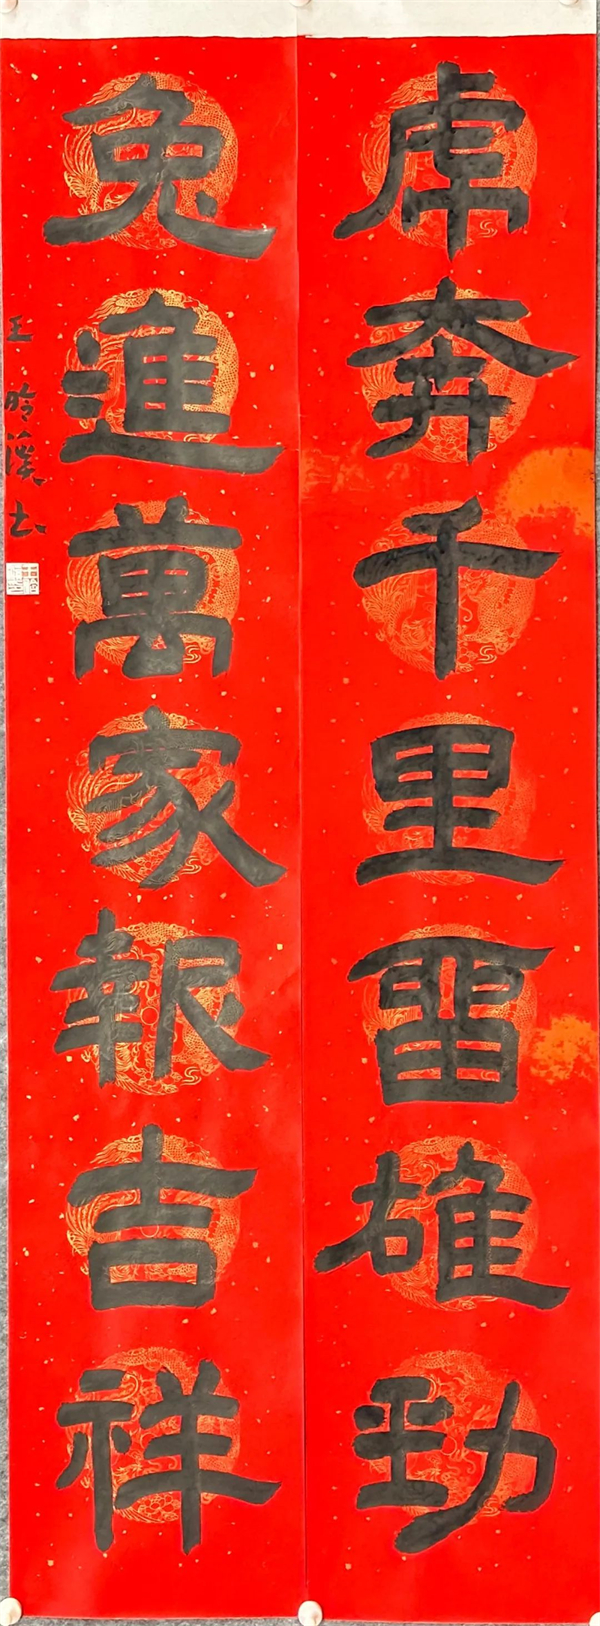 虎奔千里留雄勁
兔進萬家報吉祥
王昤溪书